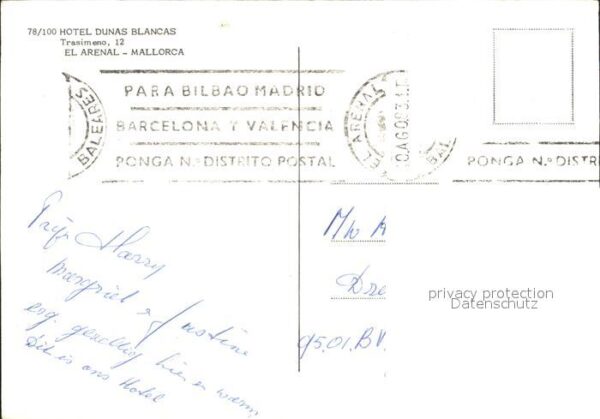 78/100 HOTEL DUNAS BLANCAS
Trasimeno, 12
EL ARENAL - MALLORCA
BALEARES
PARA BILBAO MADRID
BARCELONA Y VALENCIA
PONGA N.º DISTRITO POSTAL
EL ARENAL
AGO 83
BAL
PONGA N.º DISTRI
Harry
Margriet & Justine
erg gezellig hier en warm
Dit is ons Hotel
Mw
Dre
9501.BV.
privacy protection
Datenschutz